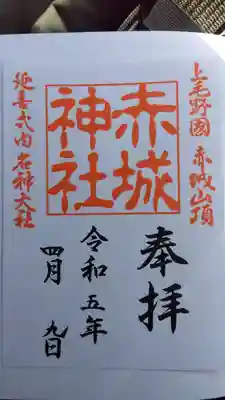 上毛野國 赤城山頂
奉拝
赤城
神社
令和五年
四月 九日
延喜式内 名神大社